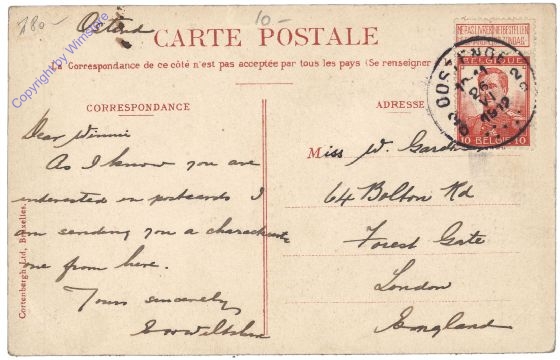 180-
10-
Ostend
CARTE POSTALE
La Correspondance de ce côté n'est pas acceptée par tous les pays (Se renseigner
Copyright by
CORRESPONDANCE
Dear Winnie
As I know you are
interested in postcards I
am sending you a characteristic
one from here.
Yours sincerely
Cortenbergh Ltd, Bruxelles.
ADRESSE
Miss W.
64 Bolton Rd
Forest Gate
London
England
NE PAS LIVRER NIET BESTELLEN
BELGIQUE
10 BELGIË 10
OOSTENDE
1912